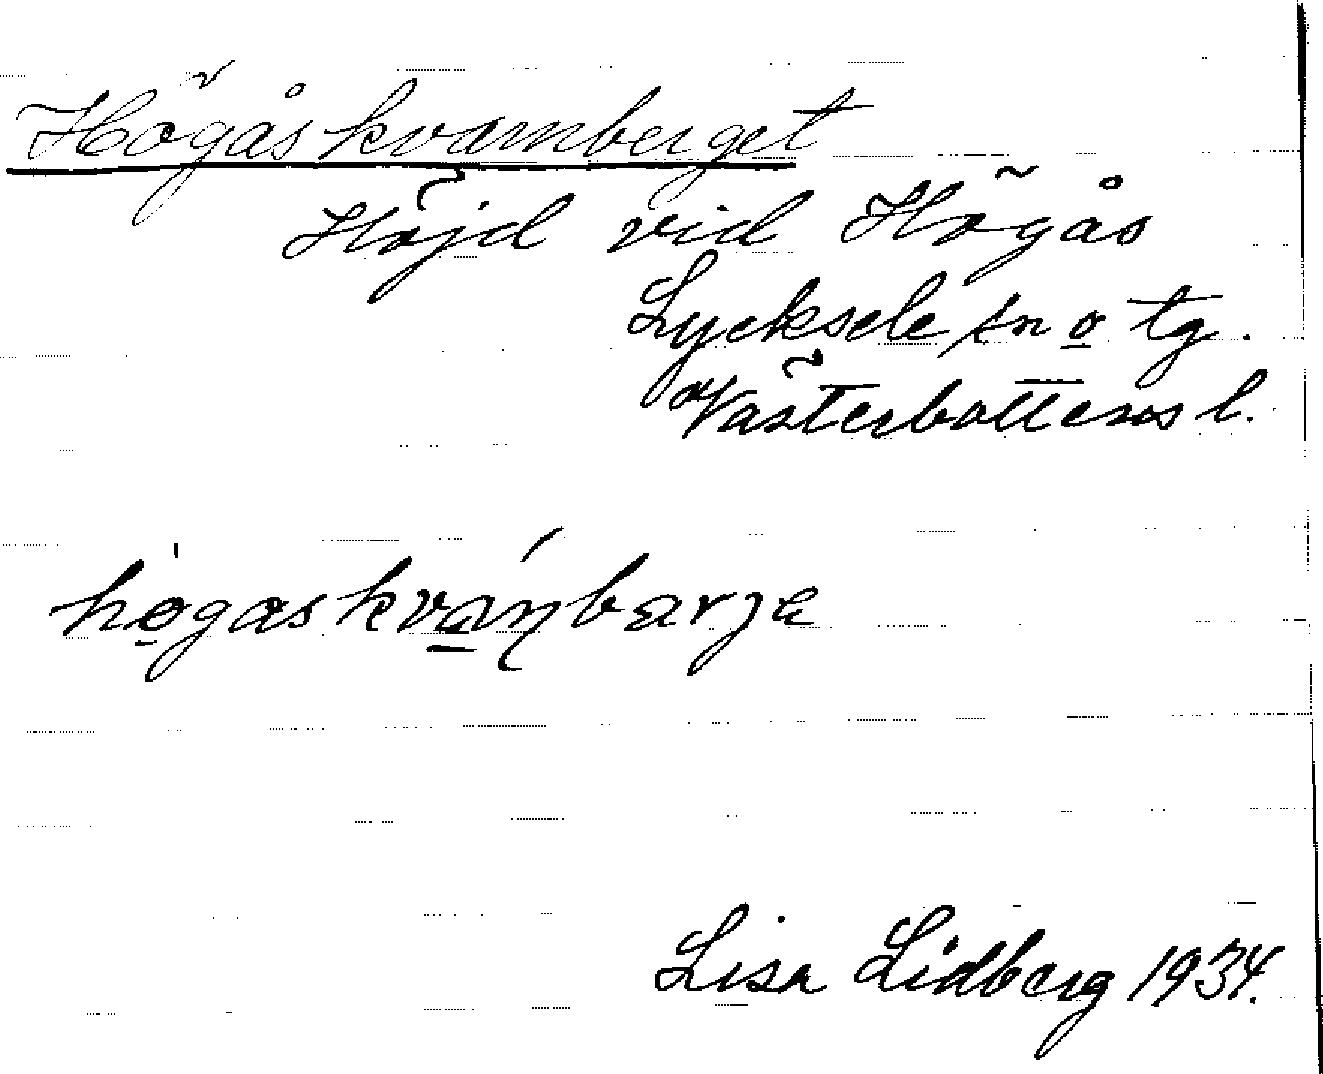 Högåskvarnberget
Höjd vid Högås
Lycksele sn o tg.
Västerbottens l.
Lisa Lidberg 1934.